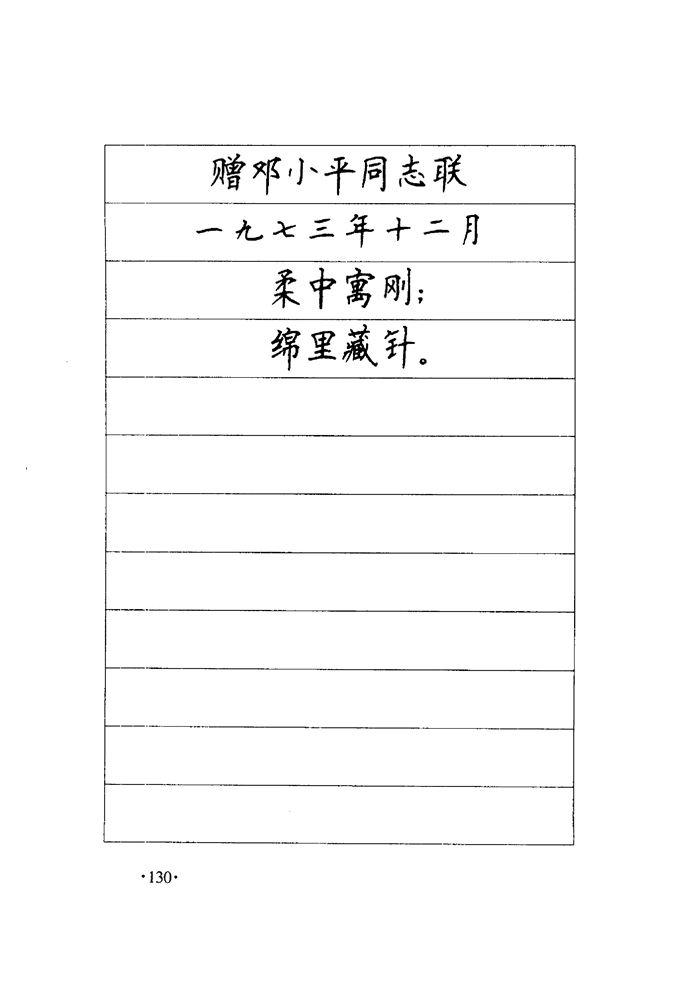 赠邓小平同志联
一九七三年十二月
柔中寓刚；
绵里藏针。
·130·